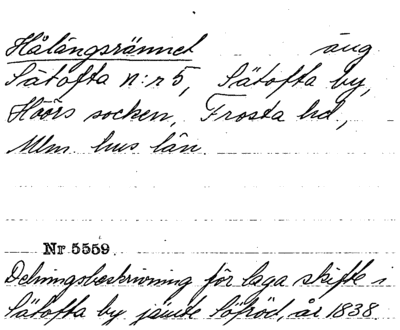 Hålängsrännet äng
Sätofta n:r 5, Sätofta by,
Höörs socken, Frosta hd,
Mlm hus län.
Nr 5559
Delningsbeskrivning för laga skifte i
Sätofta by jämte Löfröd, år 1838.